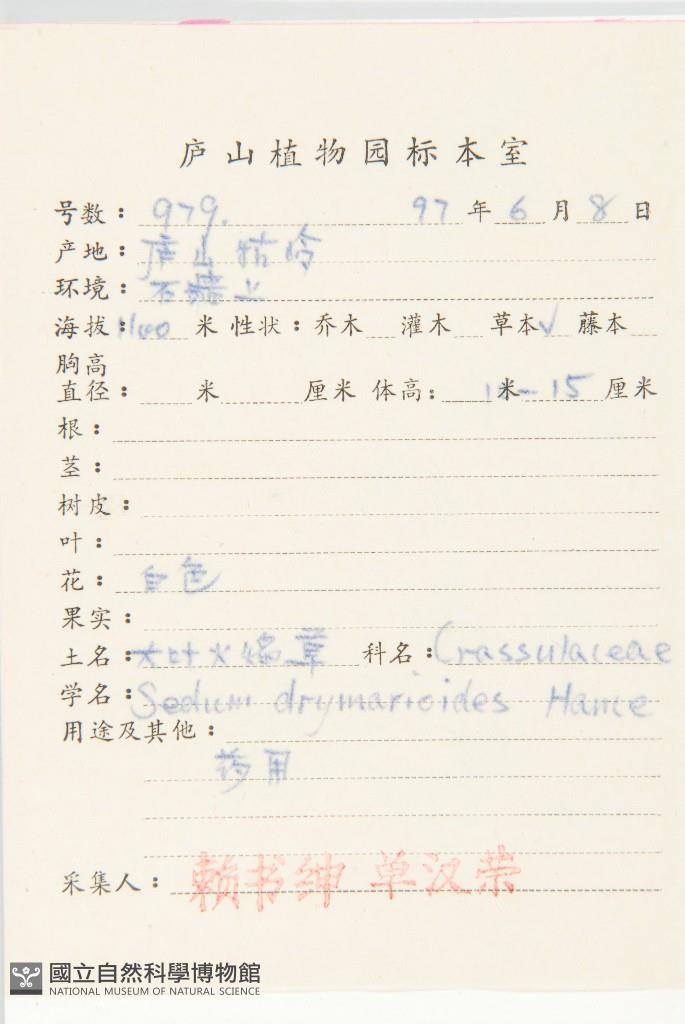 庐山植物园标本室
号数：979. 97年6月8日
产地：庐山牯岭
环境：石墙上
海拔：1100米 性状：乔木 灌木 草本√ 藤本
胸高
直径： 米 厘米 体高： 1米-15厘米
根：
茎：
树皮：
叶：
花：白色
果实：
土名：大叶火焰草 科名：Crassulaceae
学名：Sedum drymarioides Hance
用途及其他：
药用
采集人：赖书绅 单汉荣
國立自然科學博物館
NATIONAL MUSEUM OF NATURAL SCIENCE